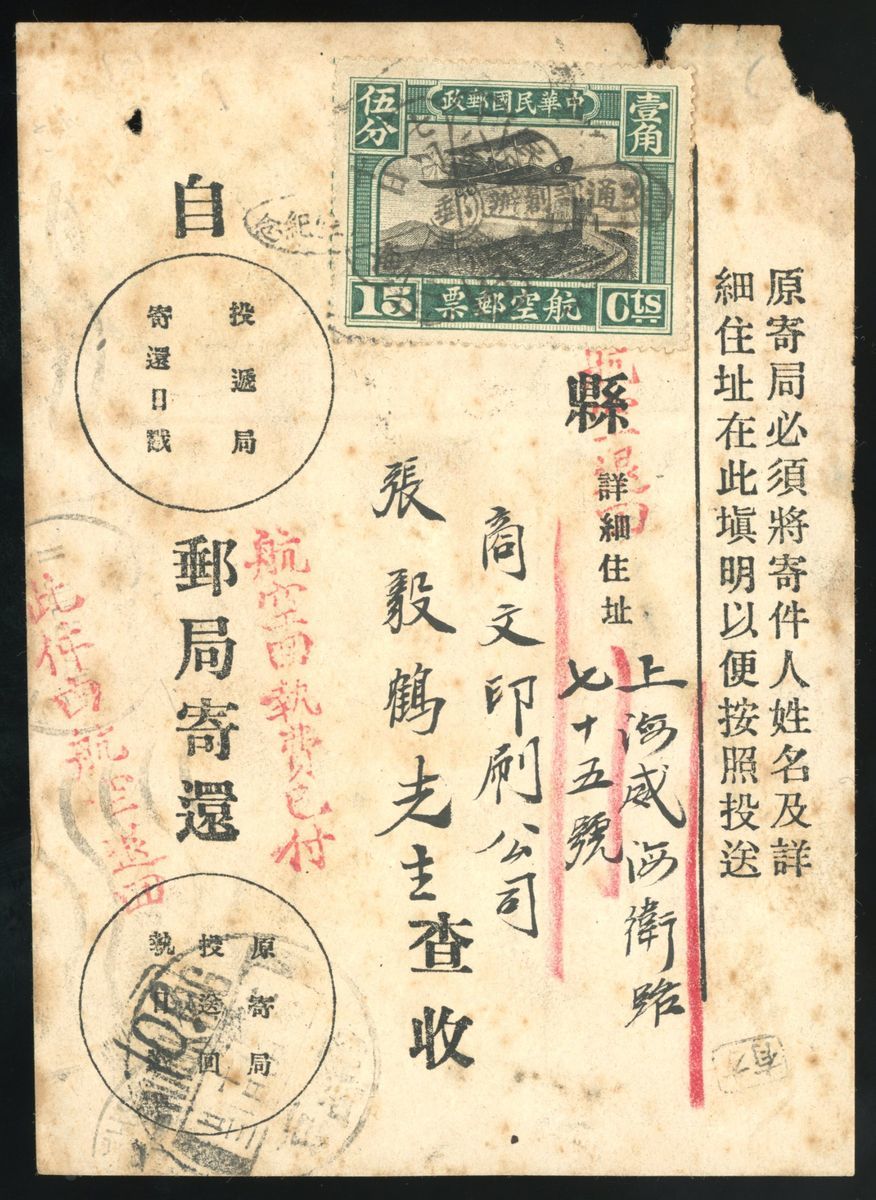 中華民國郵政
壹角
伍分
航空郵票
15 Cts
原寄局必須將寄件人姓名及詳
細住址在此塡明以便按照投送
縣
詳細住址
上海威海衛路
七十五號
商文印刷公司
張毅鶴先生查收
自
投遞局
寄還日戳
郵局寄還
原寄局
投送回
執日
航空回執費已付
此件由航空退回
航空退回
紀念
SHANGHAI